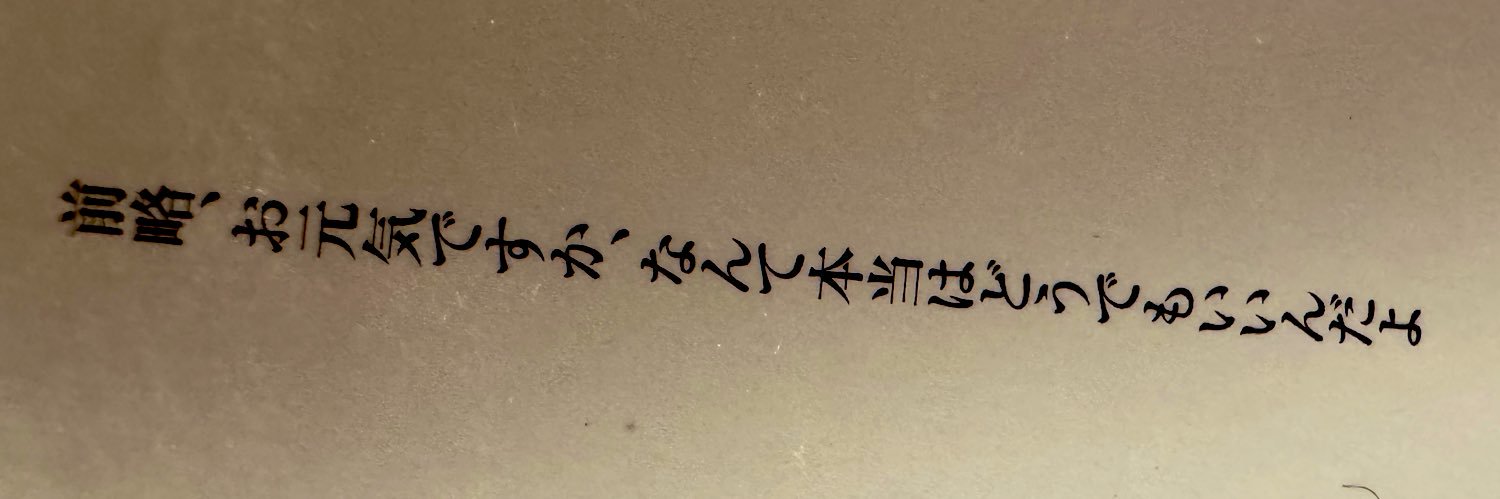 前略、お元気ですか、なんて本当はどうでもいいんだよ